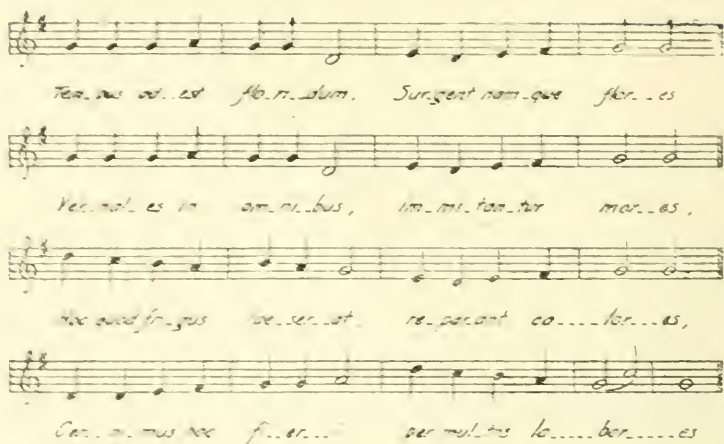 Tem_pus ad_est flo_ri_dum, Sur_gent nam_que flor__es
Ver_nal_es in om_ni_bus, im_mi_tan_tur mor__es,
Hoc quod fri_gus lae_ser_at re_par_ant ca____lor__es,
Cer_ni_mus hoc fi_er___ per mul_tas la____bor__es